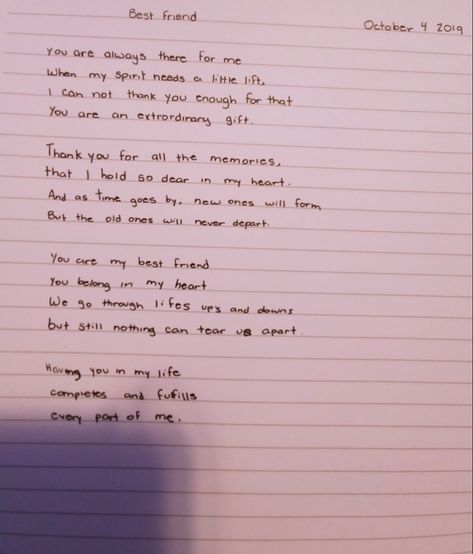 Best Friend
October 4 2019
You are always there for me
When my spirit needs a little lift,
I can not thank you enough for that
You are an extrordinary gift.
Thank you for all the memories,
that I hold so dear in my heart.
And as time goes by, new ones will form
But the old ones will never depart.
You are my best friend
You belong in my heart
We go through lifes up's and downs
but still nothing can tear us apart.
Having you in my life
completes and fufills
every part of me.